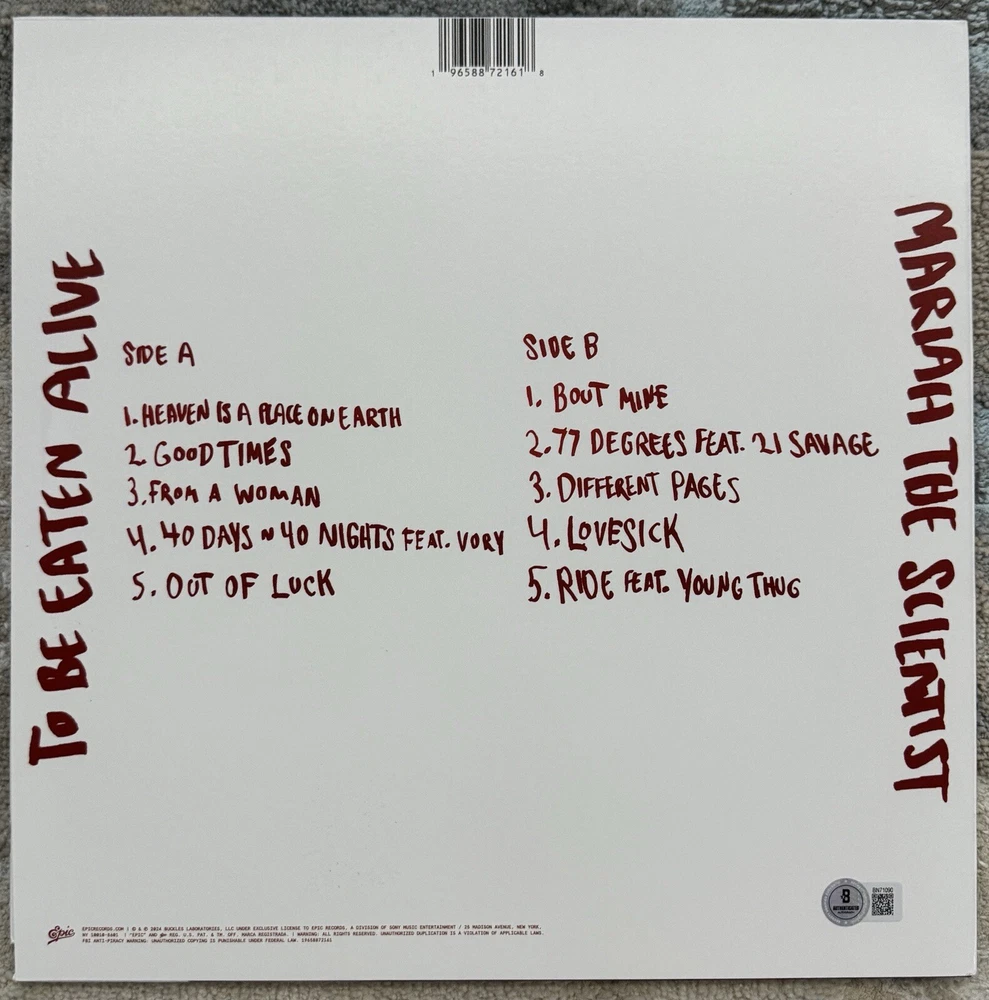 1 96588 72161 8
TO BE EATEN ALIVE
SIDE A
1. HEAVEN IS A PLACE ON EARTH
2. GOOD TIMES
3. FROM A WOMAN
4. 40 DAYS N 40 NIGHTS FEAT. VORY
5. OUT OF LUCK
SIDE B
1. BOUT MINE
2. 77 DEGREES FEAT. 21 SAVAGE
3. DIFFERENT PAGES
4. LOVESICK
5. RIDE FEAT. YOUNG THUG
MARIAH THE SCIENTIST
Epic
EPICRECORDS.COM | ℗ & © 2024 BUCKLES LABORATORIES, LLC UNDER EXCLUSIVE LICENSE TO EPIC RECORDS, A DIVISION OF SONY MUSIC ENTERTAINMENT / 25 MADISON AVENUE, NEW YORK,
NY 10010-8601 | "EPIC" AND REG. U.S. PAT. & TM. OFF. MARCA REGISTRADA. | WARNING: ALL RIGHTS RESERVED. UNAUTHORIZED DUPLICATION IS A VIOLATION OF APPLICABLE LAWS.
FBI ANTI-PIRACY WARNING: UNAUTHORIZED COPYING IS PUNISHABLE UNDER FEDERAL LAW. 19658872161
B
AUTHENTICATED
BN71090